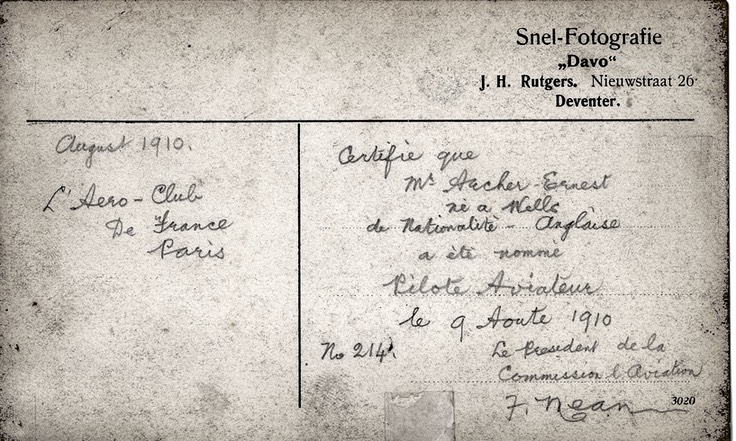 Snel-Fotografie
„Davo“
J. H. Rutgers. Nieuwstraat 26
Deventer.
August 1910.
L'Aero-Club
De France
Paris
Certifie que
Mr Archer-Ernest
né a Wells
de Nationalité - Anglaise
a été nommé
Pilote Aviateur
le 9 Aoute 1910
No 214
Le President de la
Commission l Aviation
F. Nean
3020